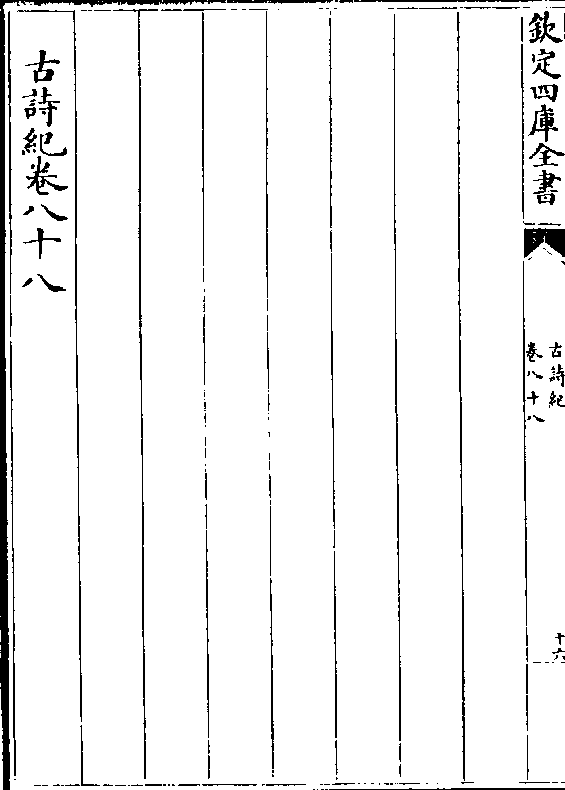 欽定四庫全書
古詩紀
卷八十八
十六
古詩紀卷八十八